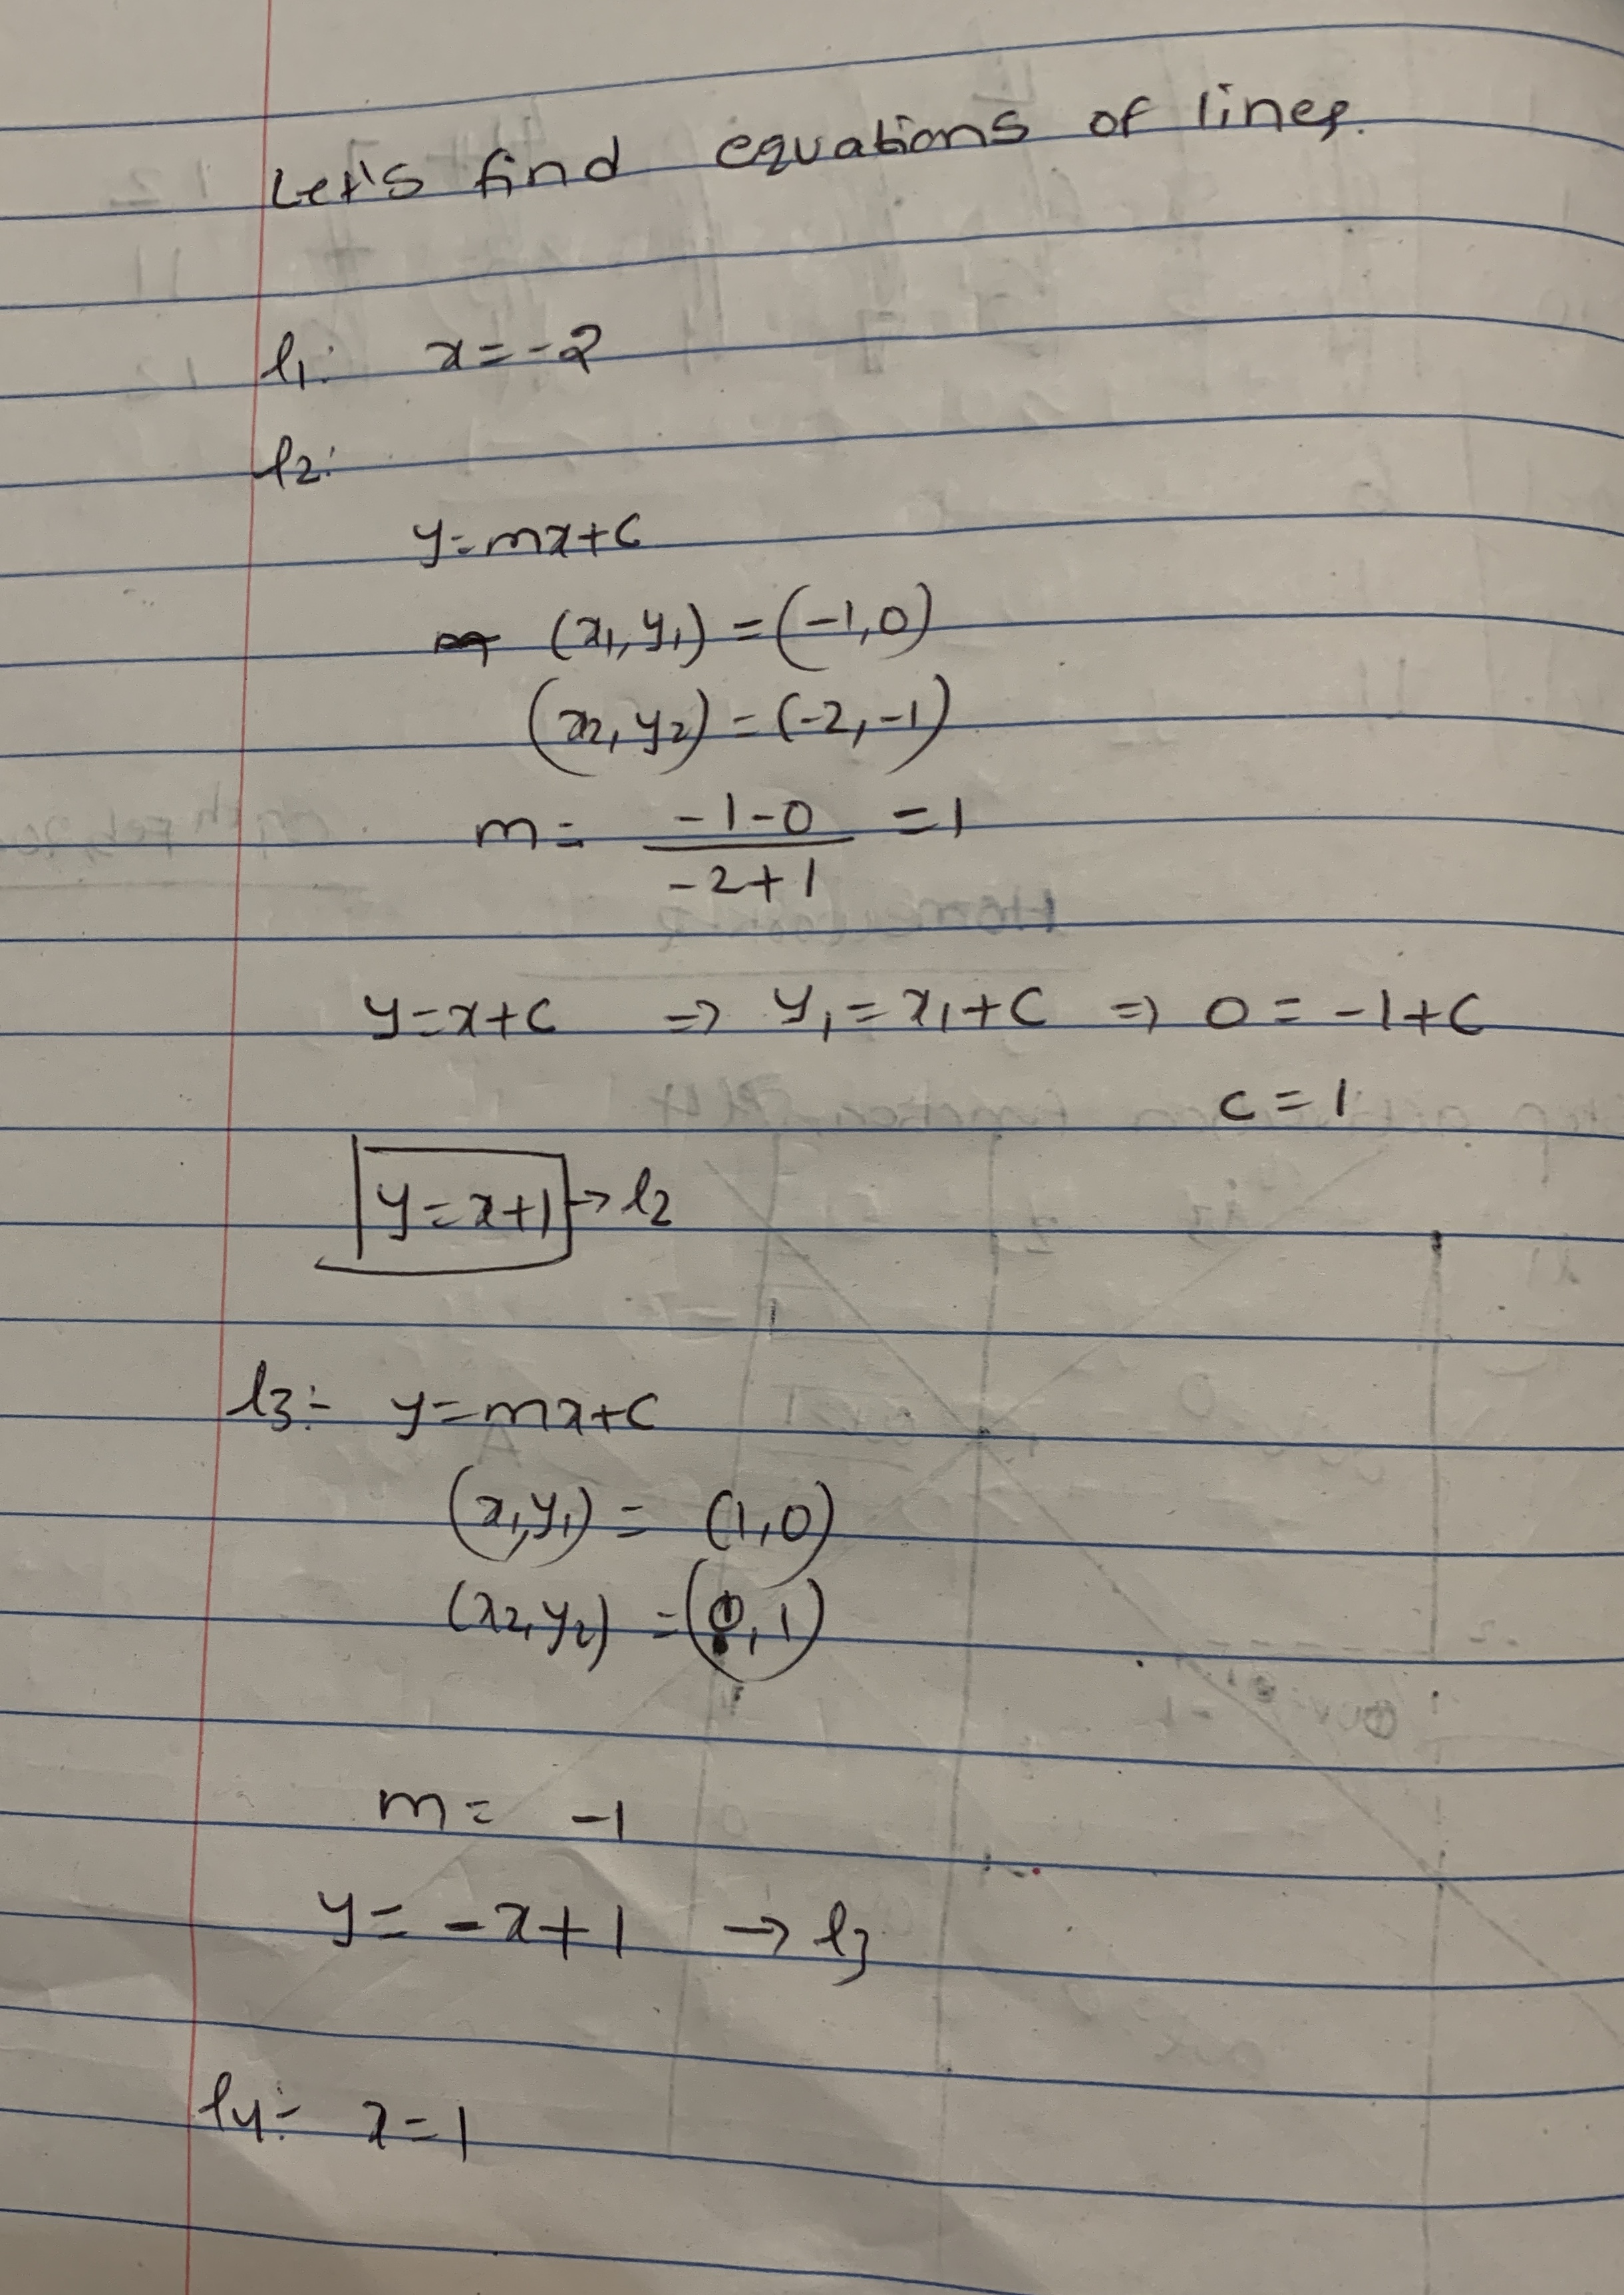 Let's find equations of lines.
l₁: x=-2
l₂:
y=mx+c
(x₁, y₁) = (-1,0)
(x₂, y₂) = (-2,-1)
m = (-1-0)/(-2+1) = 1
y=x+c ⇒ y₁ = x₁+c ⇒ 0 = -1+c
c = 1
y=x+1 → l₂
l₃:- y=mx+c
(x₁,y₁) = (1,0)
(x₂,y₂) = (0,1)
m = -1
y = -x+1 → l₃
l₄:- x=1